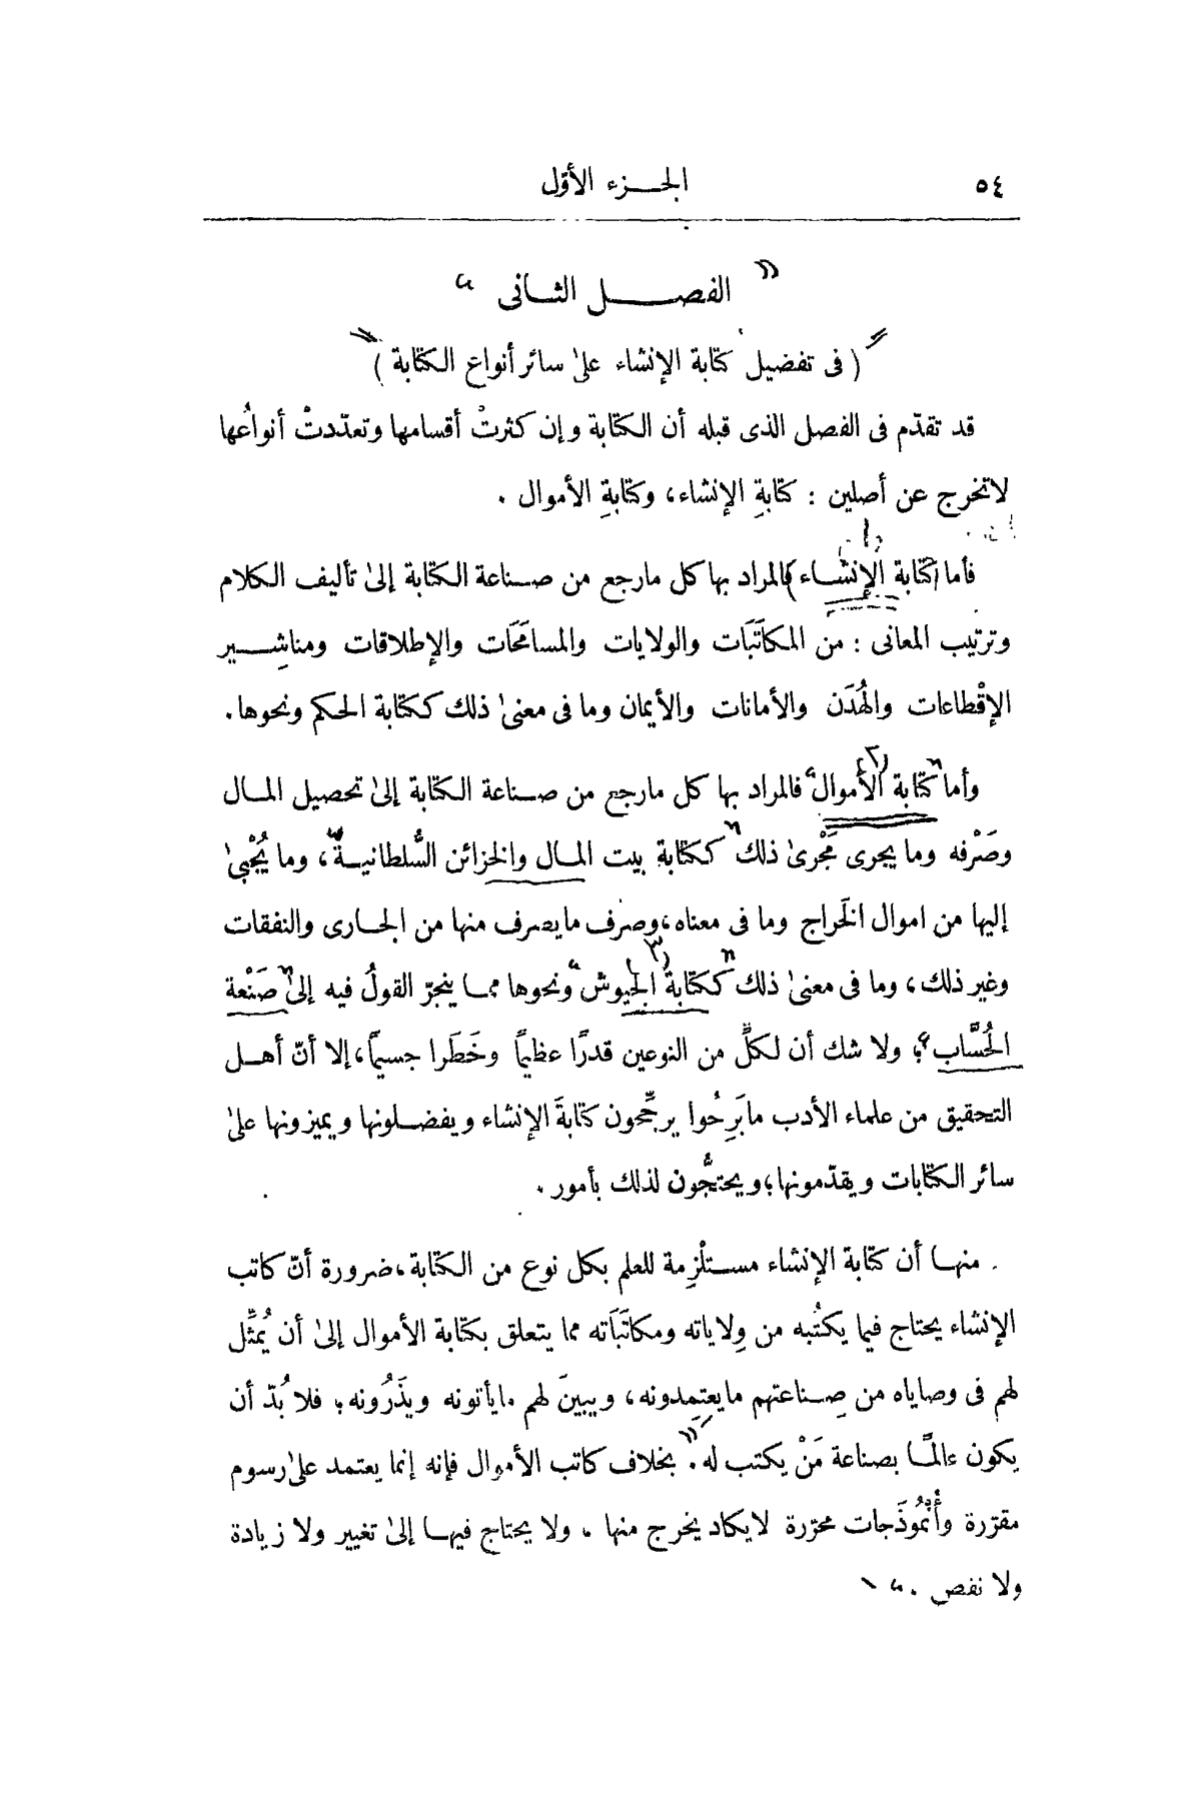 ٥٤ الجزء الأوّل
الفصل الثانى
(فى تفضيل كتابة الإنشاء علىٰ سائر أنواع الكتابة)
قد تقدّم فى الفصل الذى قبله أن الكتابة وإن كثرتْ أقسامها وتعدّدتْ أنواعُها
لاتخرج عن أصلين : كتابةِ الإنشاء، وكتابةِ الأموال .
فأما كتابة الإنشاء فالمراد بها كل مارجع من صناعة الكتابة إلىٰ تأليف الكلام
وترتيب المعانى : من المكاتَبَات والولايات والمسامَحَات والإطلاقات ومناشِير
الإقْطاعات والهُدَن والأمانات والأيمان وما فى معنىٰ ذلك ككتابة الحكم ونحوها.
وأما كتابة الأموال فالمراد بها كل مارجع من صناعة الكتابة إلىٰ تحصيل المال
وصَرْفه وما يجرى مَجْرىٰ ذلك ككتابة بيت المال والخزائن السُّلطانية، وما يُجْبىٰ
إليها من اموال الخَراج وما فى معناه، وصرْف مايصرف منها من الجارى والنفقات
وغير ذلك، وما فى معنىٰ ذلك ككتابة الجيوش ونحوها مما ينجرّ القولُ فيه إلىٰ صَنْعة
الحُسَّاب؛ ولا شك أن لكلٍّ من النوعين قدرًا عظيمًا وخَطَرا جسيمًا، إلا أنّ أهل
التحقيق من علماء الأدب مابَرِحُوا يرجِّحون كتابةَ الإنشاء ويفضلونها ويميزونها علىٰ
سائر الكتابات ويقدّمونها؛ ويحتجُّون لذلك بأمور .
منها أن كتابة الإنشاء مستلْزِمة للعلم بكل نوع من الكتابة، ضرورة أنّ كاتب
الإنشاء يحتاج فيما يكتُبه من وِلاياته ومكاتَبَاته مما يتعلق بكتابة الأموال إلىٰ أن يُمثِّل
لهم فى وصاياه من صِناعتهم مايعتمِدونه، ويبينَ لهم مايأتونه ويذَرُونه؛ فلا بُدّ أن
يكون عالمًا بصناعة مَنْ يكتب له. بخلاف كاتب الأموال فإنه إنما يعتمد علىٰ رسوم
مقرّرة وأُنْمُوذَجات محرّرة لايكاد يخرج منها . ولا يحتاج فيها إلىٰ تغيير ولا زيادة
ولا نقص .